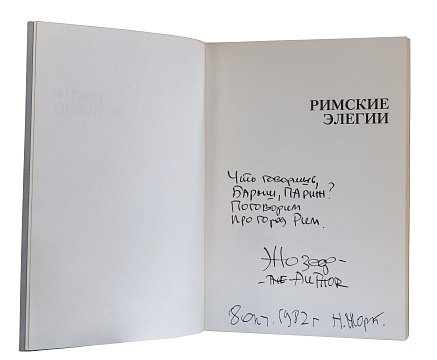 РИМСКИЕ
ЭЛЕГИИ
Что говоришь,
БАРЫШ, ПАРИЖ?
Поговорим
про город Рим.
Жозеф-
-THE AUTHOR
8 окт. 1982 г Н. Йорк.